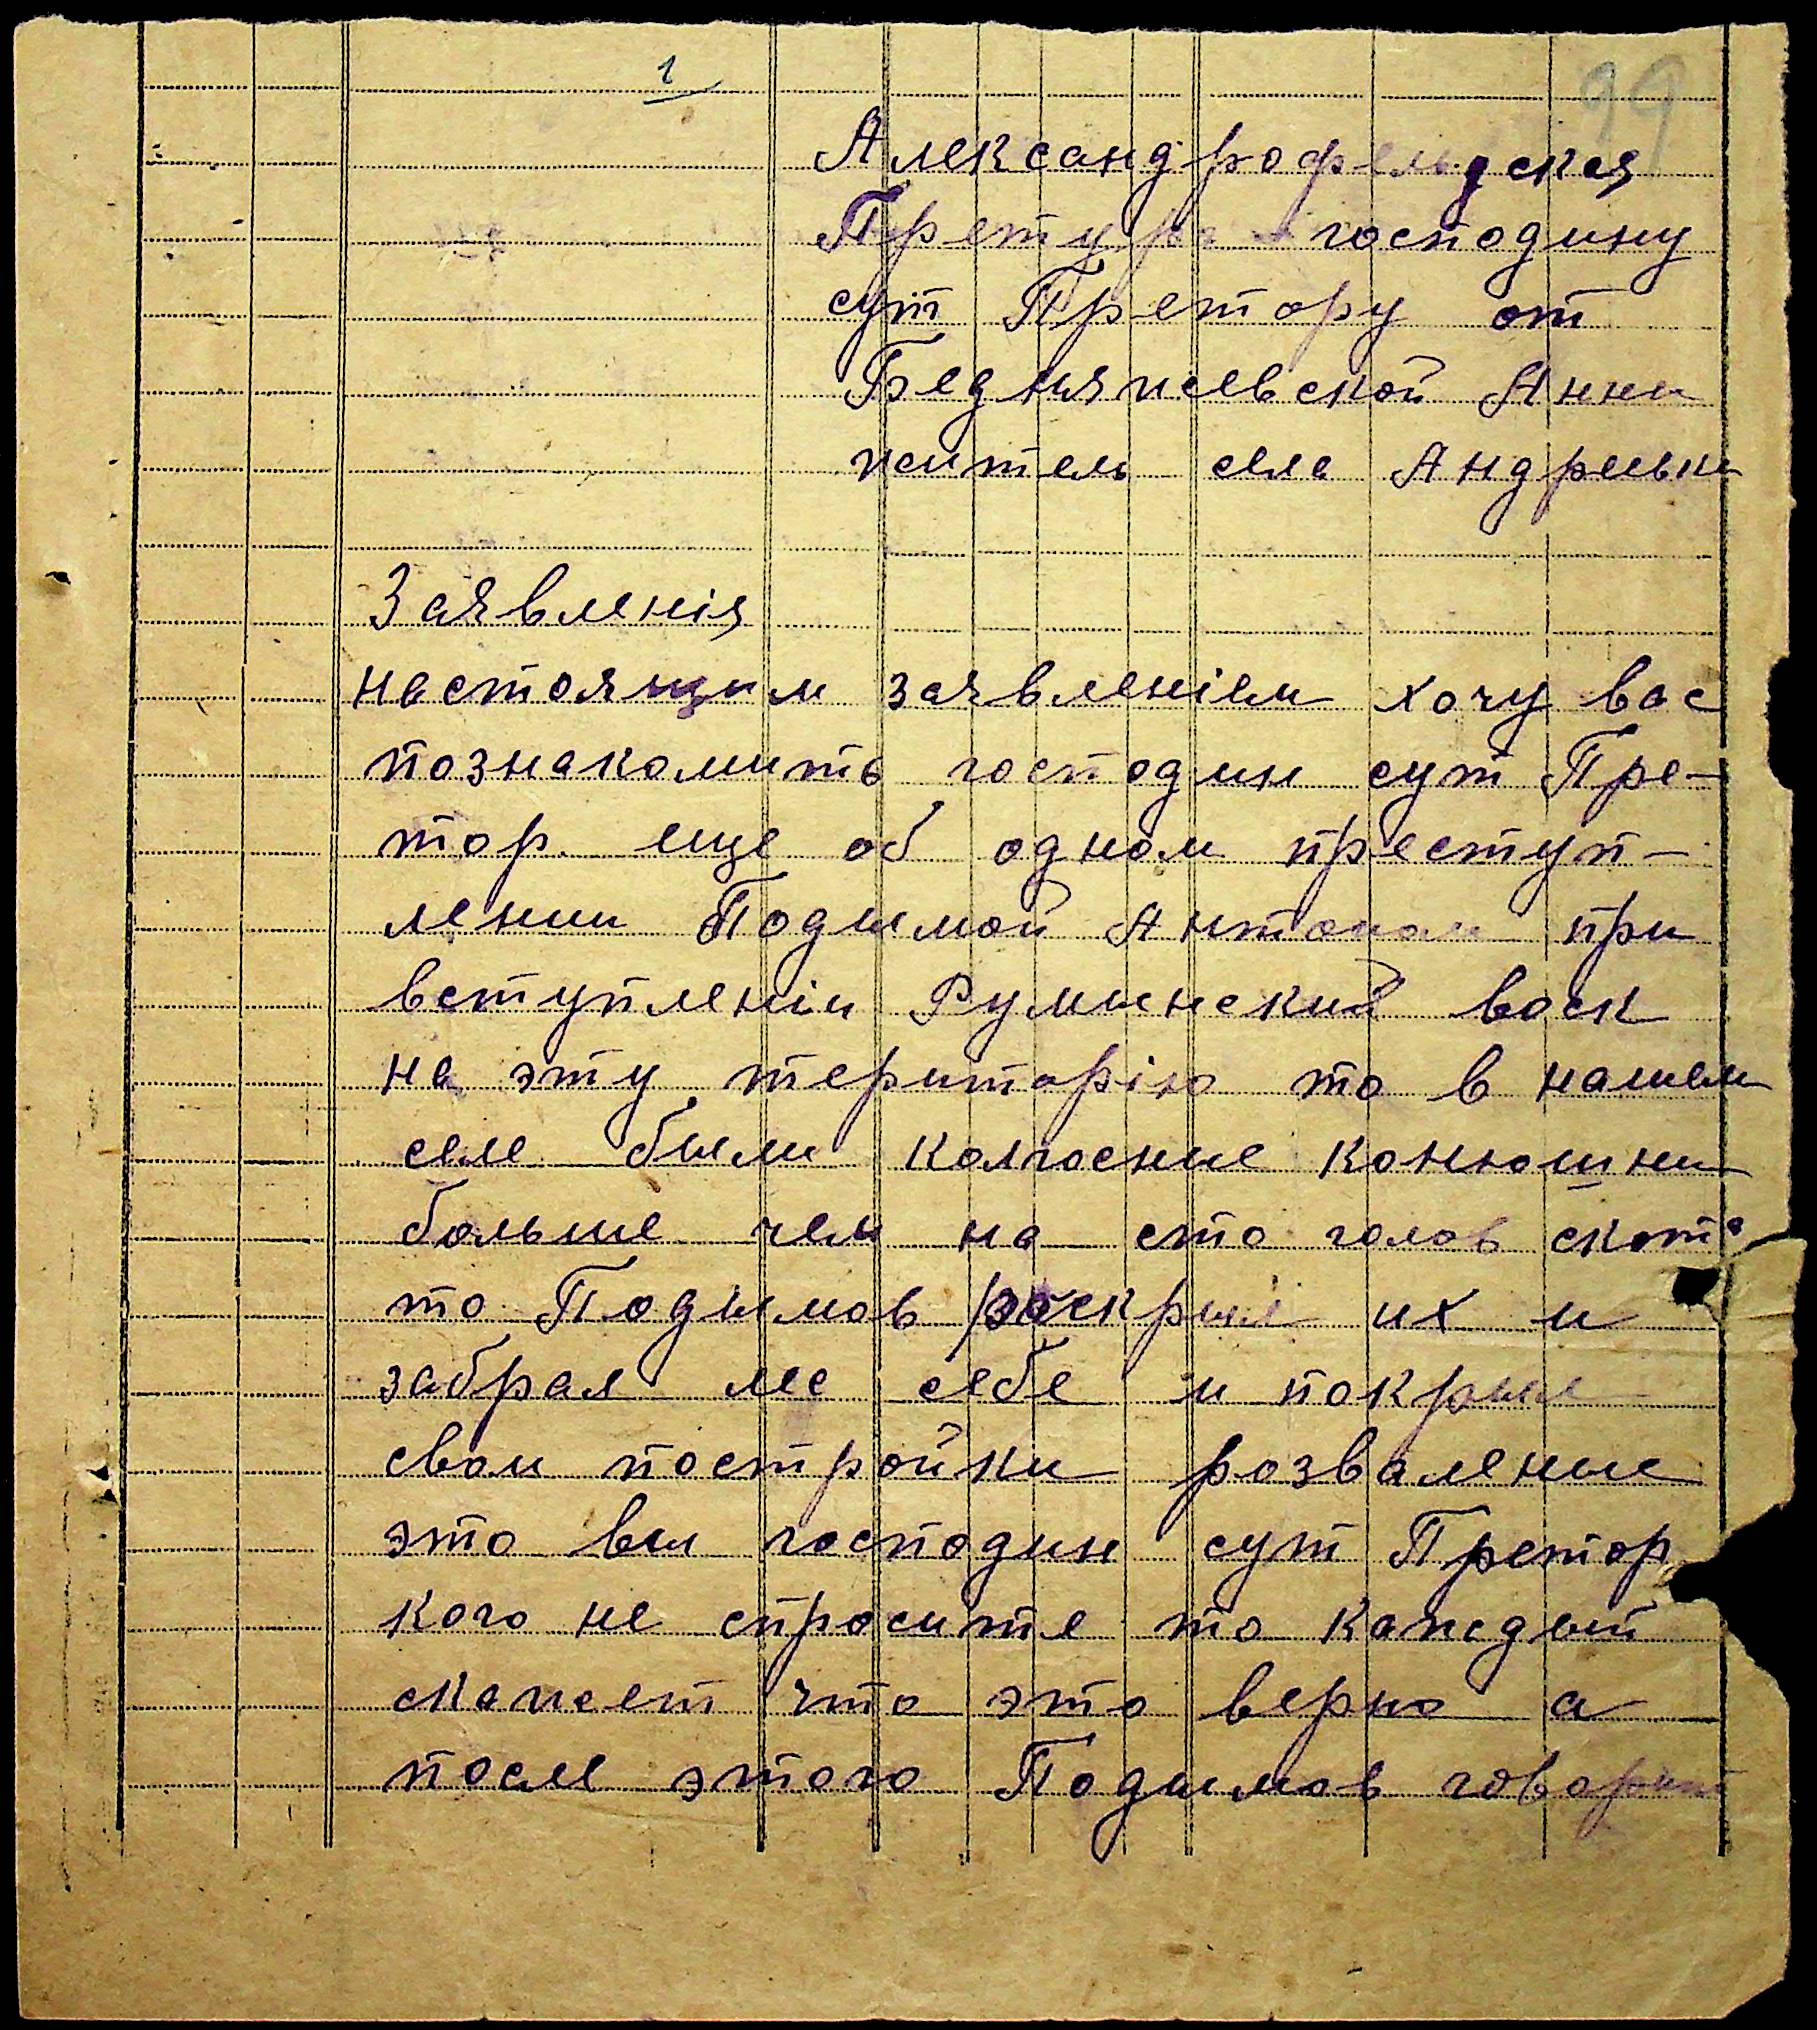 1
99
Александрофельдская
Претура господину
суп Претору от
Беднячевской Анни
житель села Андреевки
Заявленія
настоящим заявленіем хочу вас
познакомить господин суп Пре-
тор. еще об одном преступ-
лении Подымой Антоном при
вступленіи Румынский воск
на эту територію то в нашем
селе были колхосные конюшни
больше чем на сто голов скота
то Подымов роскрыл их и
забрал лес себе и покрыл
свои постройки розваленые
это вы господин суп Претор
кого не спросите то каждый
скажет что это верно а
после этого Подымов говорит